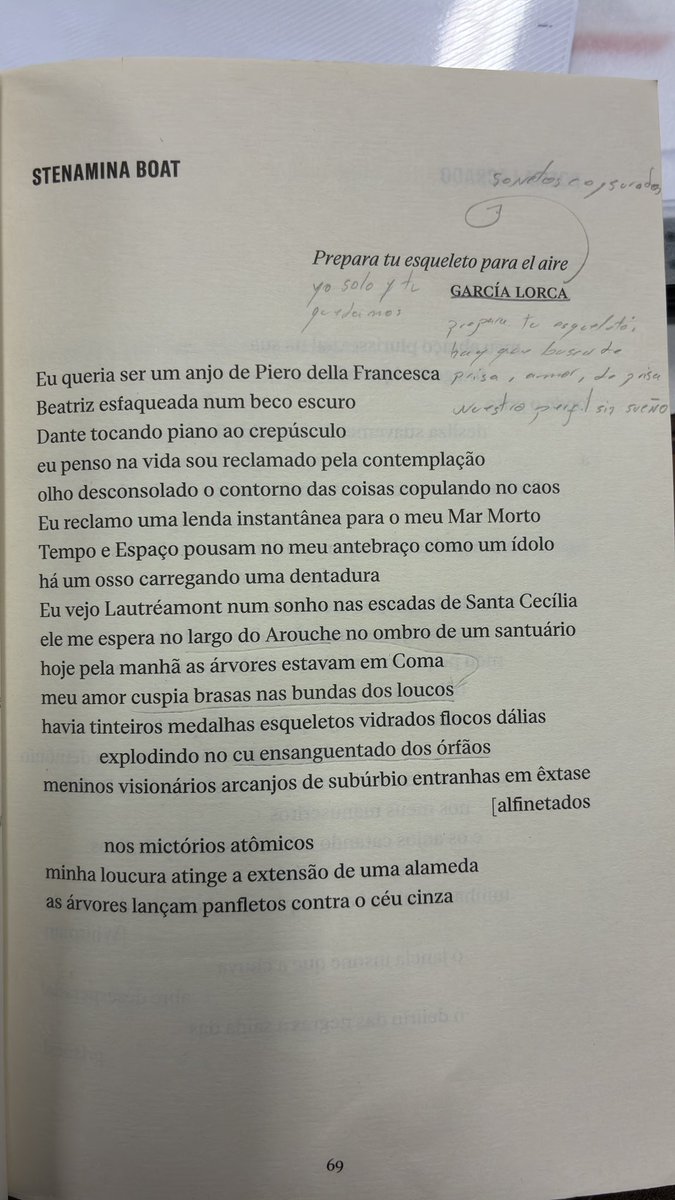 STENAMINA BOAT
sonetos
Prepara tu esqueleto para el aire
GARCÍA LORCA
yo solo y tu
quedamos
prepara tu esqueleto,
hay que buscar de
prisa, amor, de prisa
nuestro perfil sin sueño
Eu queria ser um anjo de Piero della Francesca
Beatriz esfaqueada num beco escuro
Dante tocando piano ao crepúsculo
eu penso na vida sou reclamado pela contemplação
olho desconsolado o contorno das coisas copulando no caos
Eu reclamo uma lenda instantânea para o meu Mar Morto
Tempo e Espaço pousam no meu antebraço como um ídolo
há um osso carregando uma dentadura
Eu vejo Lautréamont num sonho nas escadas de Santa Cecília
ele me espera no largo do Arouche no ombro de um santuário
hoje pela manhã as árvores estavam em Coma
meu amor cuspia brasas nas bundas dos loucos
havia tinteiros medalhas esqueletos vidrados flocos dálias
explodindo no cu ensanguentado dos órfãos
meninos visionários arcanjos de subúrbio entranhas em êxtase
[alfinetados
nos mictórios atômicos
minha loucura atinge a extensão de uma alameda
as árvores lançam panfletos contra o céu cinza
69